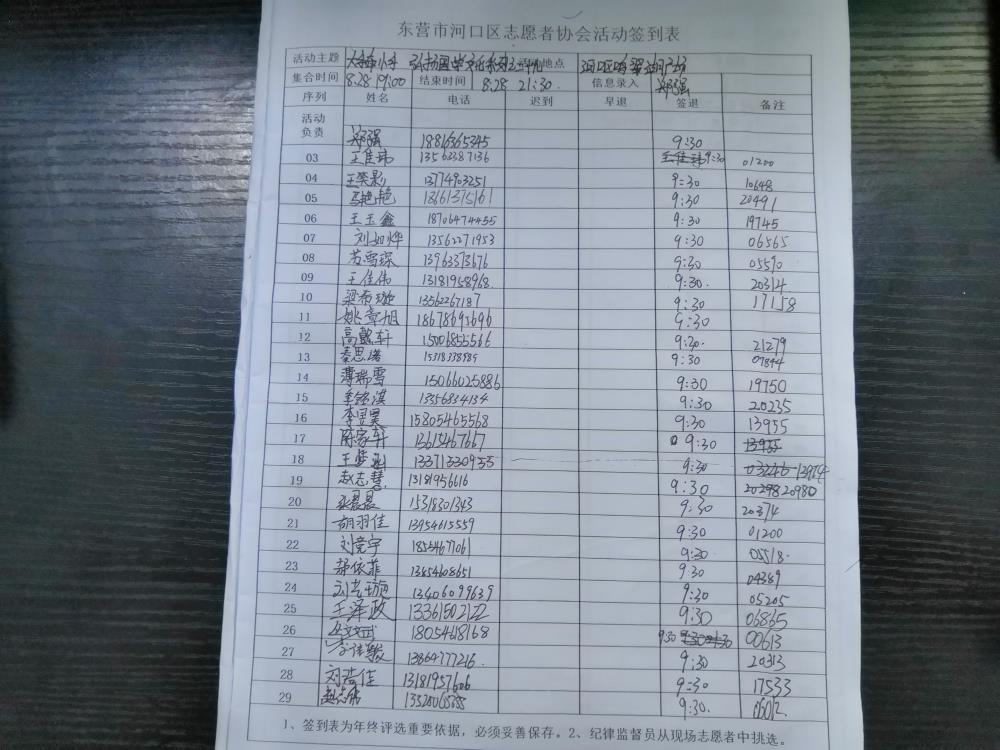 东营市河口区志愿者协会活动签到表
活动主题 弘扬国学 活动地点 河口区鸣翠湖广场
集合时间 8.28 19:00 结束时间 8.28 21:30. 信息录入 郑强
序列 姓名 电话 迟到 早退 签退 备注
活动
负责 郑强 18816365345 9:30
03 王佳玮 13562387136 王佳玮 9:30 01200
04 13774903251 9:30 10648
05 马艳艳 18661375161 9:30 20491
06 王玉鑫 18706474455 9:30 19745
07 刘如烨 13562271953 9:30 06565
08 苏雪琛 13963373676 9:30 05590
09 王佳伟 13181958968. 9:30. 20314
10 梁希璇 13562267187 9:30 17158
11 姚章旭 18678695696 9:30
12 高懿轩 15006855566 9:30. 21279
13 秦思诺 15318338989 9:30 07844
14 薄瑞雪 15066025886 9:30 19750
15 13356834134 9:30 20235
16 李昱昊 15805465568 9:30 13955
17 陈家轩 13615467667 9:30 13955
18 王梦 13371330955 9:30 13974
19 赵志慧 13181956616 9:30 20298 20980
20 15318301343 9:30 20374
21 胡羽佳 13954615559 9:30 01200
22 刘竞宇 18554677061 9:30 05518.
23 郝依菲 13854608651 9:30 04389
24 13406099639 9:30 05205
25 王泽政 13361502122 9:30 06865
26 18054618168 9:30 00613
27 13864777216. 9:30 20313
28 刘浩佳 13181957606 9:30 17533
29 赵志伟 9:30.
1、签到表为年终评选重要依据，必须妥善保存。2、纪律监督员从现场志愿者中挑选。